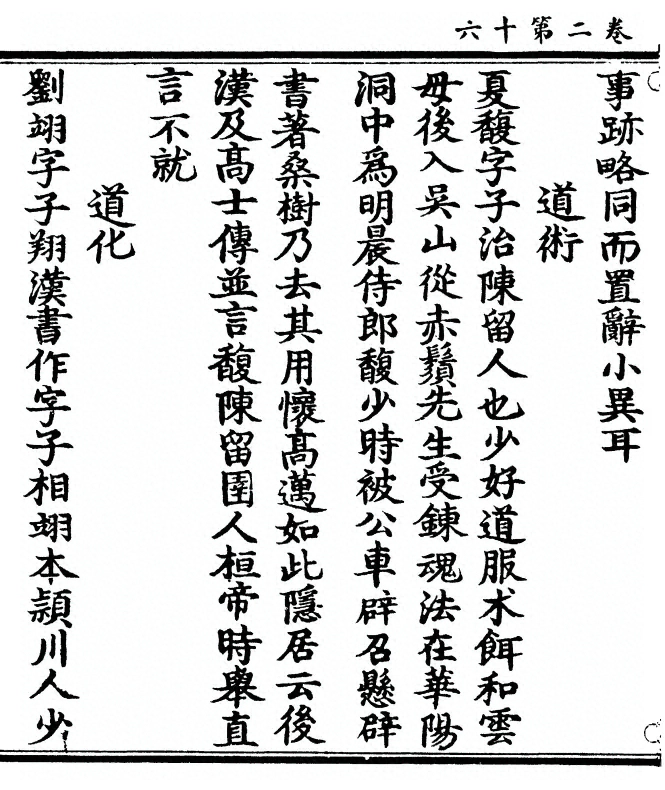 六十第二卷
事跡略同而置辭小異耳
道術
夏馥字子治陳留人也少好道服朮餌和雲
母後入吳山從赤鬚先生受鍊魂法在華陽
洞中爲明晨侍郎馥少時被公車辟召懸辟
書著桑樹乃去其用懷高邁如此隱居云後
漢及高士傳並言馥陳留圉人桓帝時舉直
言不就
道化
劉翊字子翔漢書作字子相翊本潁川人少